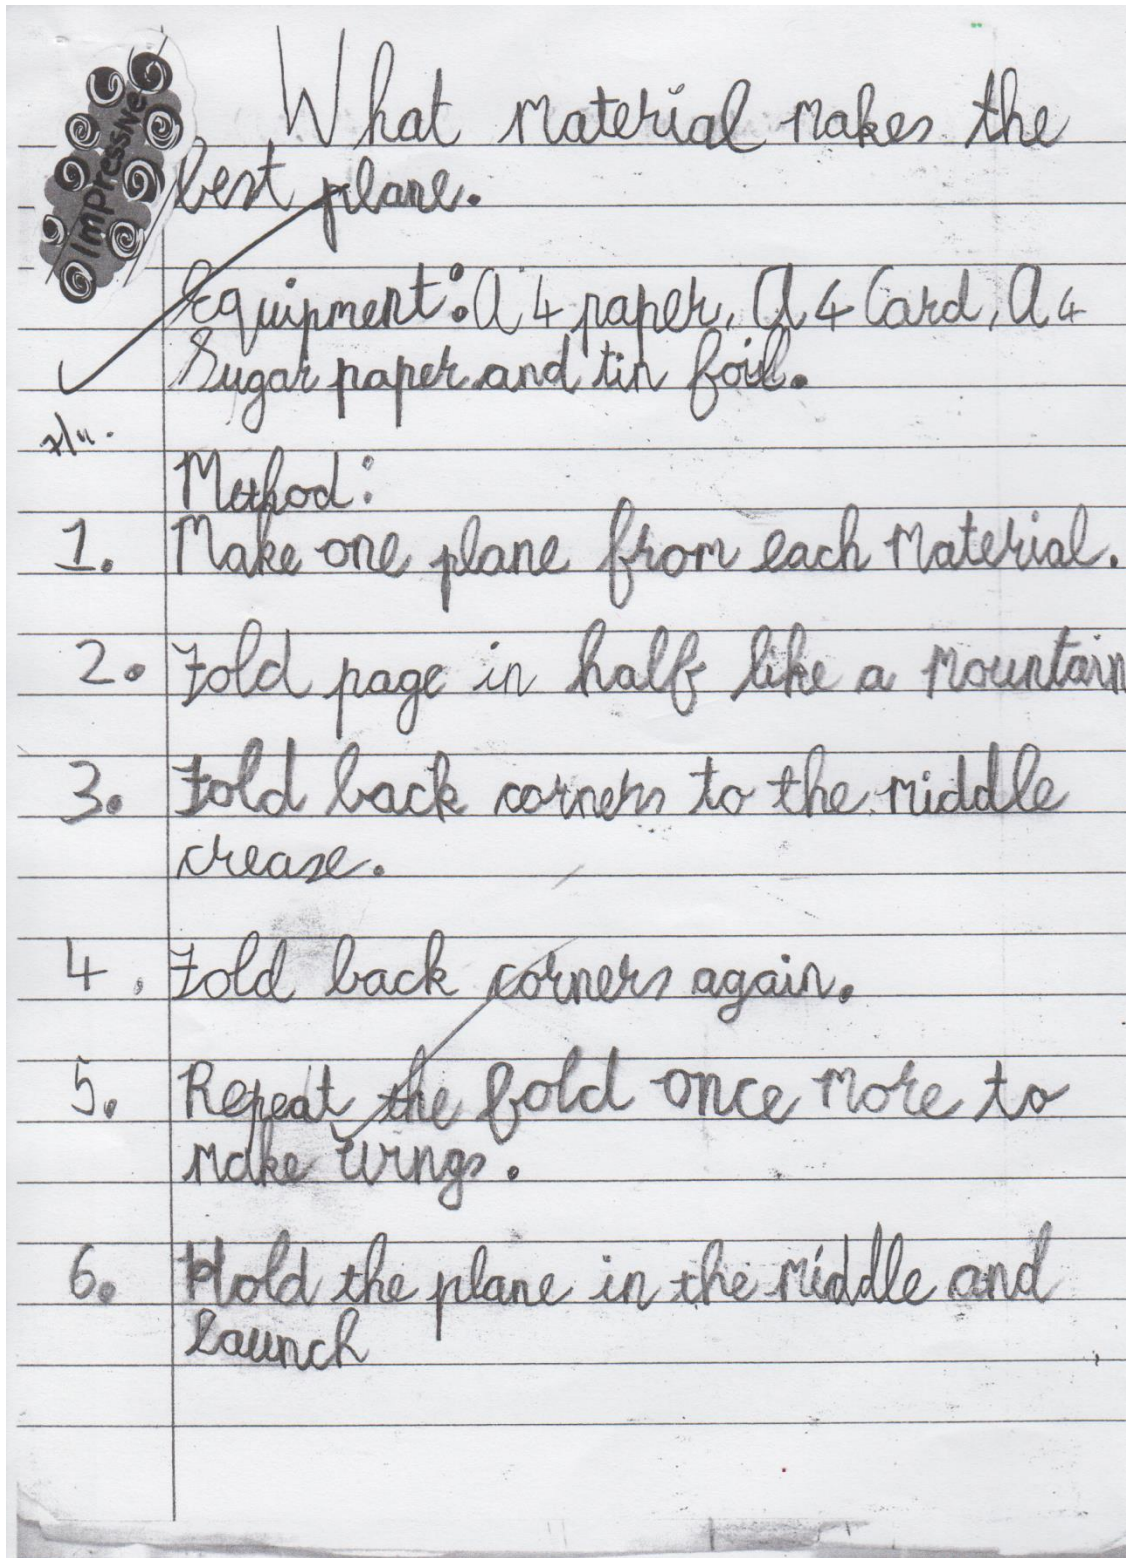 Impressive
What material makes the
best plane.
Equipment: A4 paper, A4 Card, A4
Sugar paper and tin foil.
Method:
1. Make one plane from each material.
2. Fold page in half like a mountain
3. Fold back corners to the middle
crease.
4. Fold back corners again.
5. Repeat the fold once more to
make wings.
6. Hold the plane in the middle and
launch